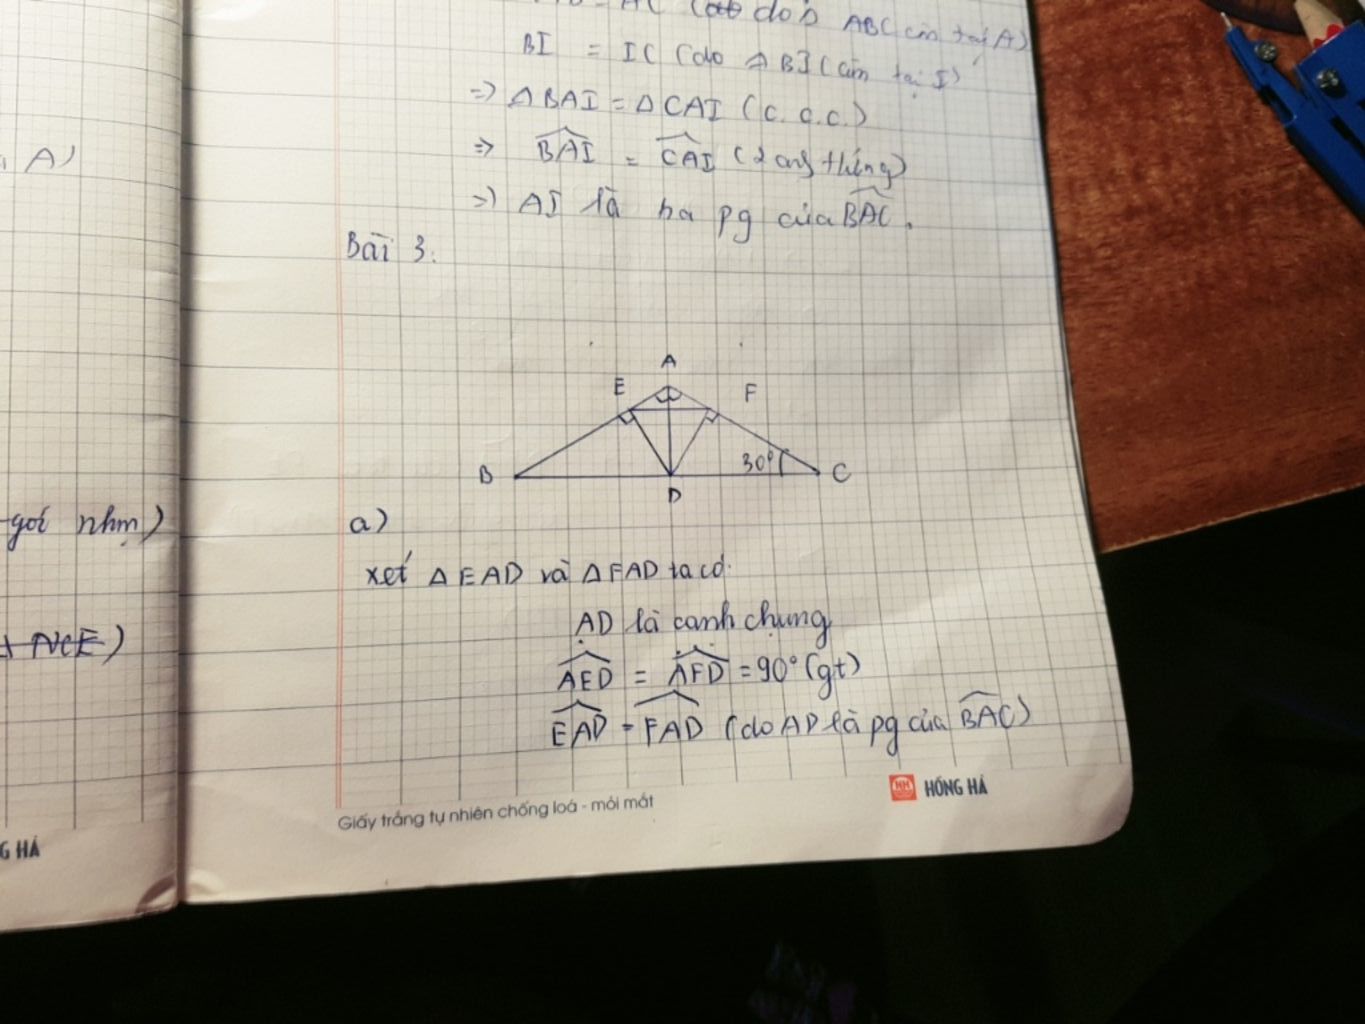 AC do ABC cân tại A)
BI = IC (do ΔBIC cân tại I)
=> ΔBAI = ΔCAI (c.c.c.)
, A)
=> BAI = CAI (2 ang thíng)
=> AI là pg của BAC.
Bài 3.
A
E F
B 30° C
D
goí nhm)
a)
xét ΔEAD và ΔFAD ta có:
NCE)
AD là canh chung
AED = AFD = 90° (gt)
EAD = FAD (do AD là pg của BAC)
HỒNG HÀ
Giấy trắng tự nhiên chống loá - mỏi mắt
G HÀ